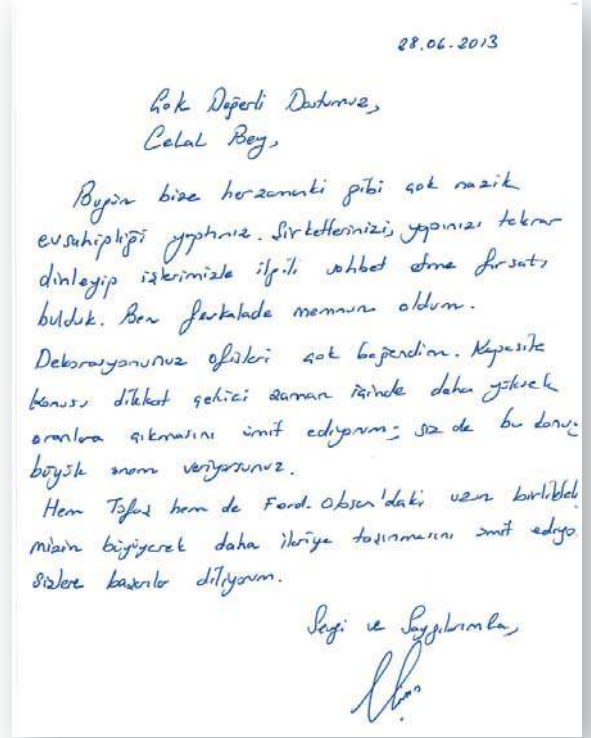 28.06.2013
Çok Değerli Dostumuz,
Celal Bey,
Bugün bize herzamanki gibi çok nazik
evsahipliği yaptınız. Şirketlerinizi, yapınızı tekrar
dinleyip işlerimizle ilgili sohbet etme fırsatı
bulduk. Ben fevkalade memnun oldum.
Dekorasyonunuz ofisleri çok beğendim. Kapasite
konusu dikkat çekici zaman içinde daha yüksek
oranlara çıkmasını ümit ediyorum; siz de bu konuya
büyük önem veriyorsunuz.
Hem Tofaş hem de Ford-Otosan'daki uzun birliktel
mizin büyüyerek daha ileriye taşınmasını ümit ediyo
Sizlere başarılar diliyorum.
Sevgi ve Saygılarımla,